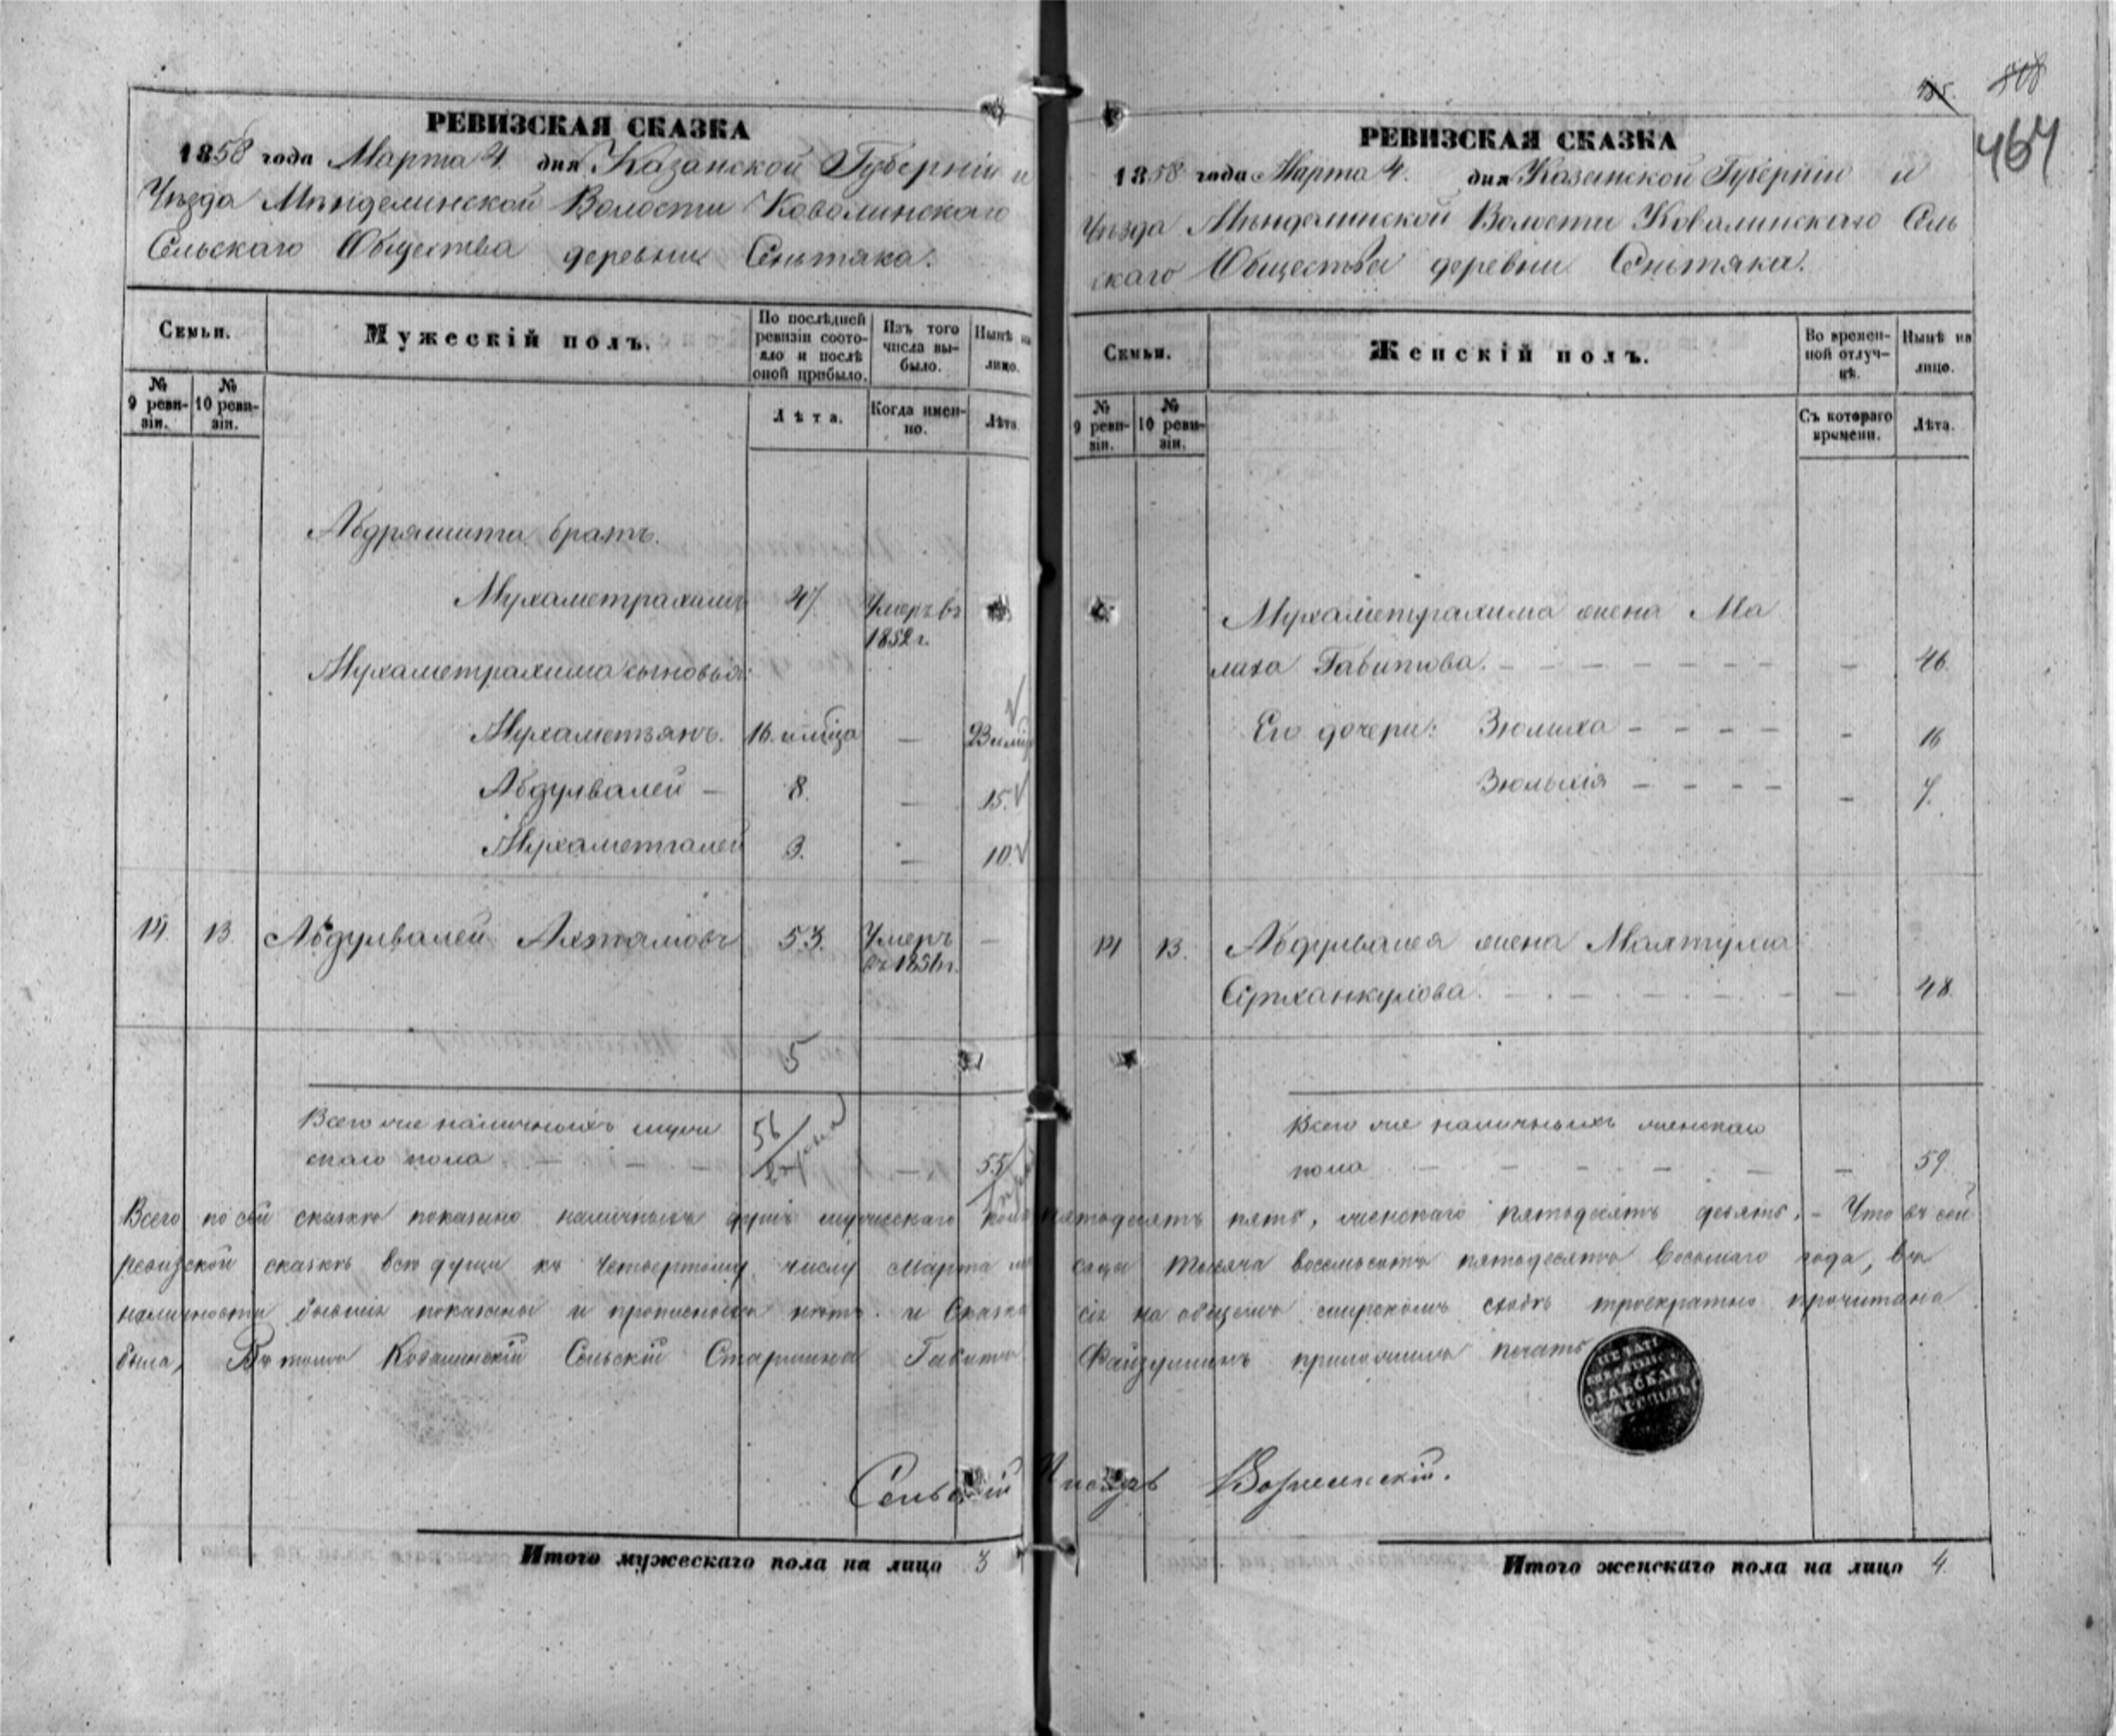 РЕВИЗСКАЯ СКАЗКА
1858 года Марта 4. дня Казанской Губерніи и
Уѣзда Мѣнделинской Волости Ковалинскаго
Сельскаго Общества деревни Сеньтяка.
Семьи.
Мужескій полъ.
По послѣдней ревизіи состояло и послѣ оной прибыло.
Изъ того числа выбыло.
Нынѣ на лицо.
№ 9 ревизіи.
№ 10 ревизіи.
Лѣта.
Когда именно.
Лѣта.
Абдряшита братъ.
Мухаметрахимъ 47. Умеръ въ 1852 г.
Мухаметрахима сыновья:
Мухаметзянъ. 16. – 23
Абдулвалей – 8. – 15.
Мухаметгалей 3. – 10.
14. 13. Абдулвалей Ахтямовъ 53. Умеръ въ 1856 г. –
5
Всего же наличныхъ муже
скаго пола – – – 56 55
РЕВИЗСКАЯ СКАЗКА
1858 года Марта 4. дня Казанской Губерніи и
Уѣзда Мѣнделинской Волости Ковалинскаго Сель
скаго Общества деревни Сеньтяка.
808
464
Семьи.
Женскій полъ.
Во временной отлучкѣ.
Нынѣ на лицо.
№ 9 ревизіи.
№ 10 ревизіи.
Съ котораго времени.
Лѣта.
Мухаметрахима жена Ма
лиха Габитова. – – 46.
Его дочери: Зюлиха – – – – – 16
Зюлькія – – – – – 7.
14 13. Абдулвалея жена Махтума
– – 48.
Всего же наличныхъ женскаго
пола – – – – – 59.
Всего по сей сказкѣ показано наличныхъ душъ мужескаго пола пятьдесятъ пять, женскаго пятьдесятъ девять. – Что въ сей
ревизской сказкѣ всѣ души къ четвертому числу Марта мѣсяца тысяча восемьсотъ пятьдесятъ восьмаго года, въ
наличности бывшія показаны и прописныхъ нѣтъ и Сказка сія на общемъ мирскомъ сходѣ троекратно прочитана
была, Въ томъ Ковалинскій Сельскій Старшина Габитъ Файзуллинъ приложилъ печать
ПЕЧАТЬ
СЕЛЬСКАГ
СТАРШИНЫ
Сельскій Писарь Вознесенскій.
Итого мужескаго пола на лицо 3
Итого женскаго пола на лицо 4.